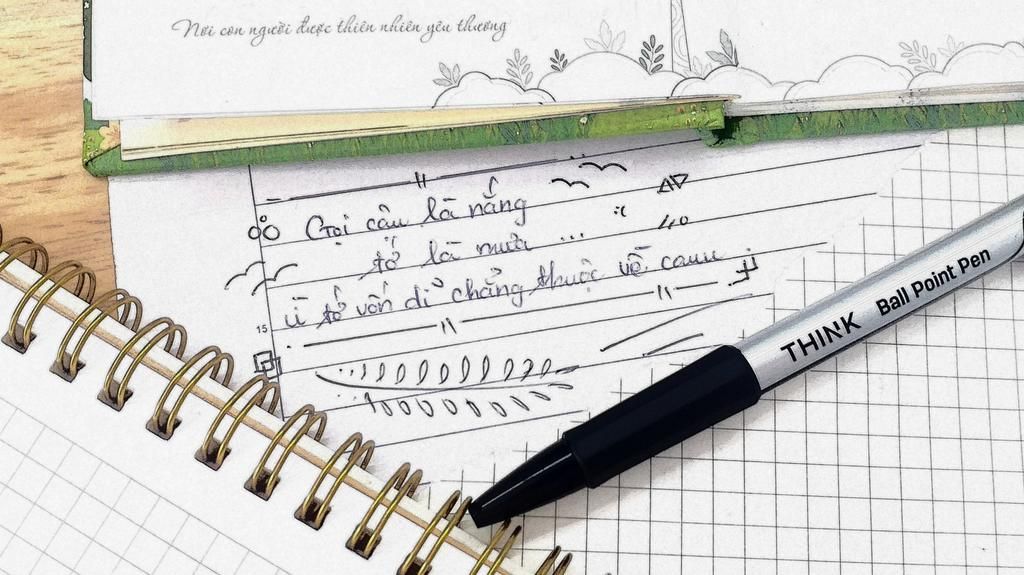 Nơi con người được thiên nhiên yêu thương
Gọi cậu là nắng
tớ là mưa ...
Vì tớ vốn dĩ chẳng thuộc về cậu
15
THINK Ball Point Pen